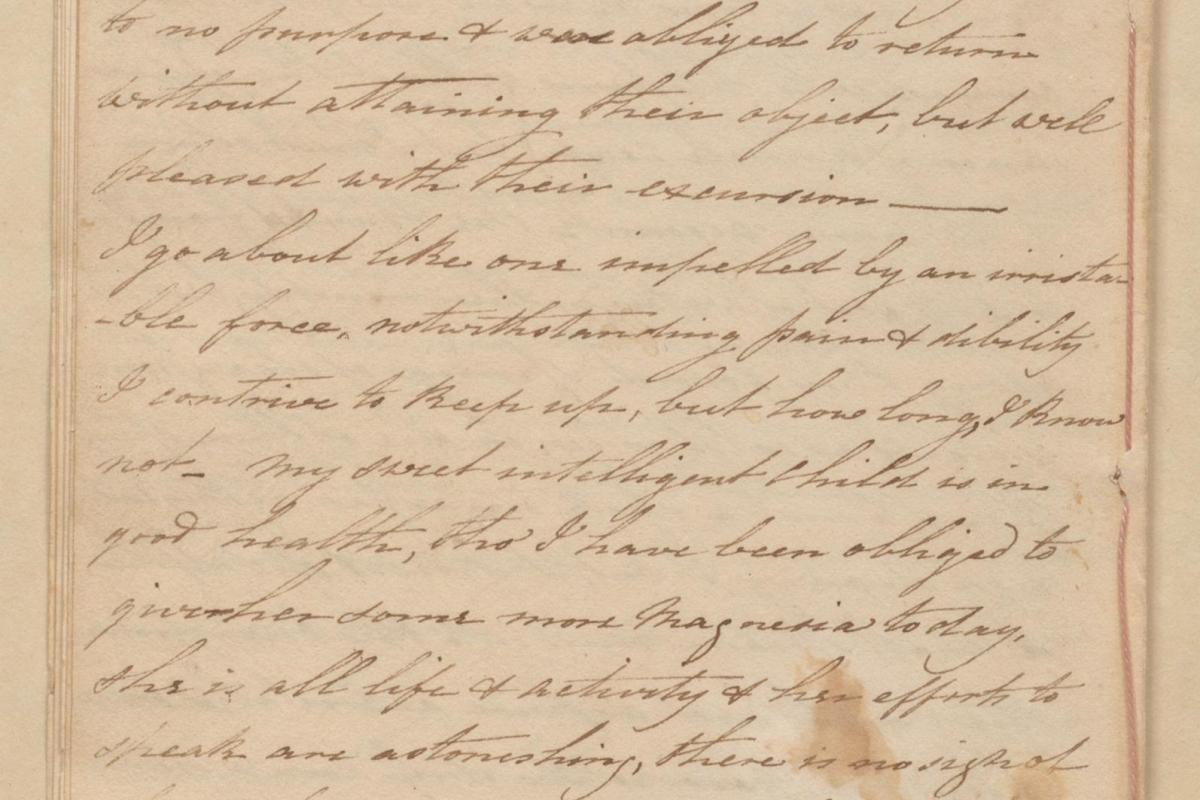 to no purpose & were obliged to return
without attaining their object, but well
pleased with their excursion —
I go about like one impelled by an irrista-
-ble force, notwithstanding pain & dibility
I contrive to keep up, but how long, I know
not – my sweet intelligent child is in
good health, tho' I have been obliged to
give her some more Magnesia to day,
she is all life & activity & her efforts to
speak are astonishing, there is no sight of